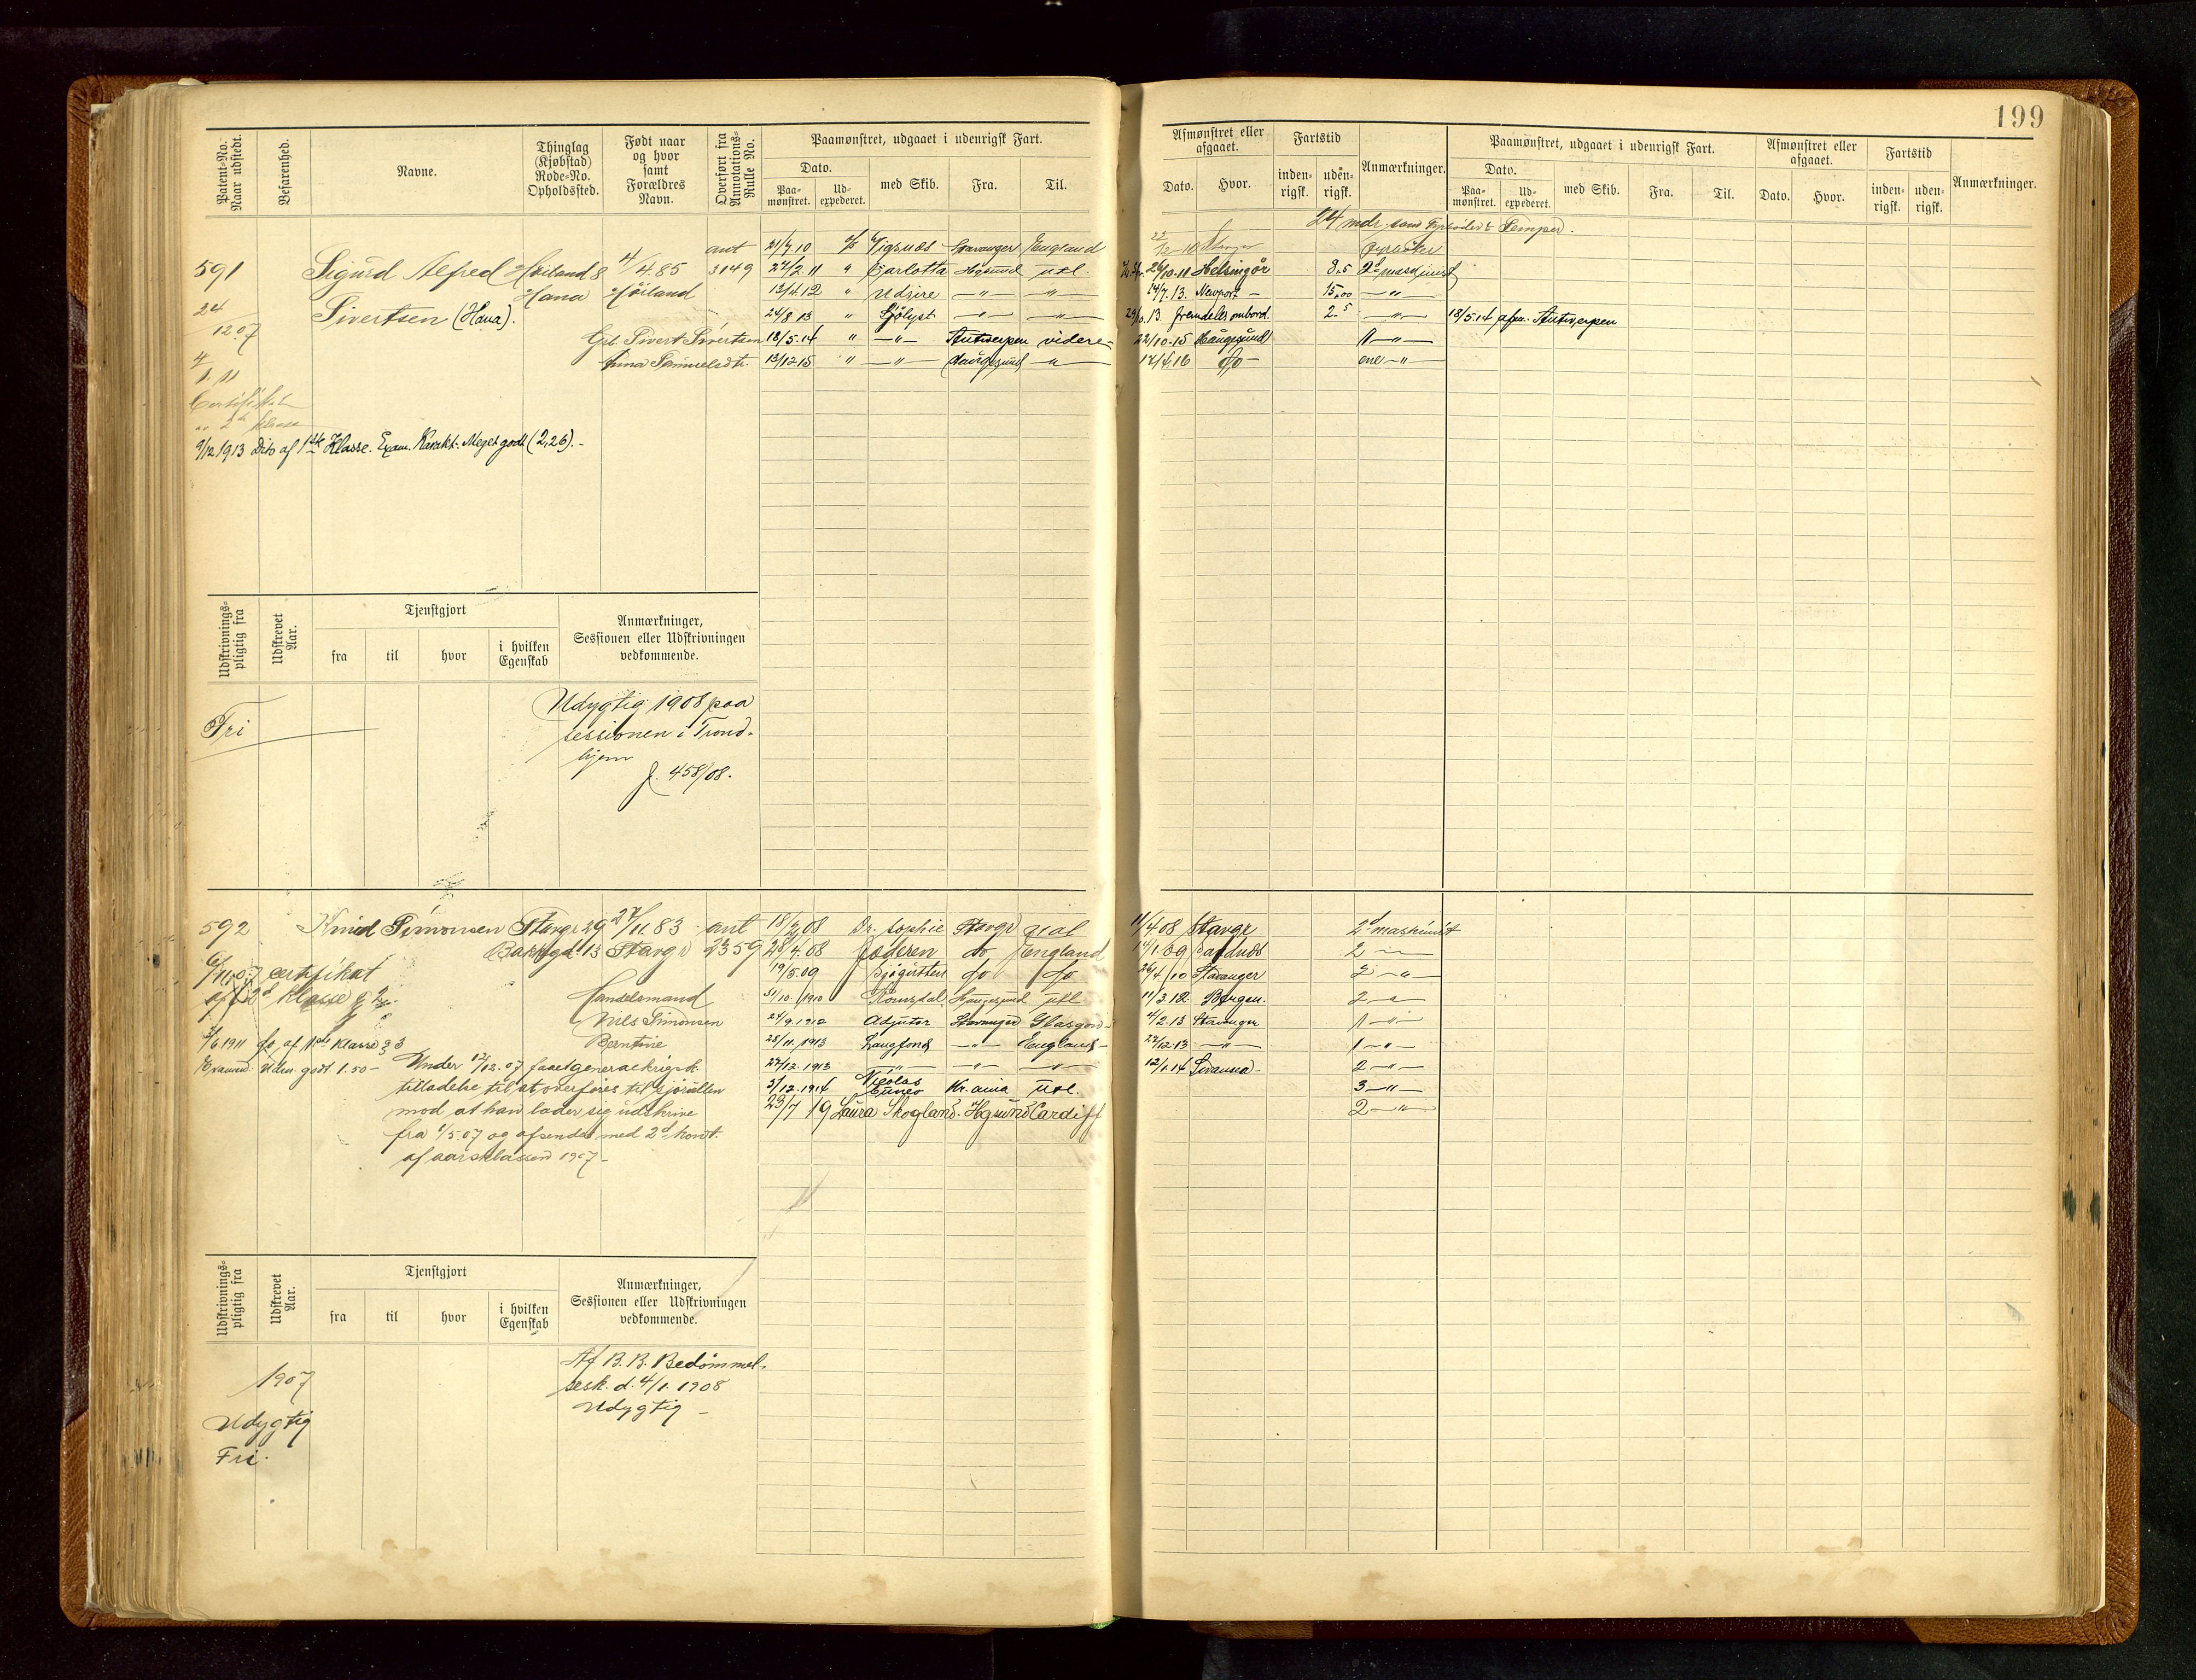 199
Patent-No. Naar udstedt.
Befarenhed.
Navne.
Thinglag (Kjøbstad) Rode-No. Opholdssted.
Født naar og hvor samt Forældres Navn.
Overført fra Annotations-Rulle No.
Paamønstret, udgaaet i udenrigsk Fart.
Dato.
Paa-mønstret.
Ud-expederet.
med Skib.
Fra.
Til.
Afmønstret eller afgaaet.
Dato.
Hvor.
Fartstid
inden-rigsk.
uden-rigsk.
Anmærkninger.
Paamønstret, udgaaet i udenrigsk Fart.
Dato.
Paa-mønstret.
Ud-expederet.
med Skib.
Fra.
Til.
Afmønstret eller afgaaet.
Dato.
Hvor.
Fartstid
inden-rigsk.
uden-rigsk.
Anmærkninger.
24 mdr. som Fyrbøder
ant 21/7.10 Vigsnæs Stavanger England
591 Sigurd Alfred Høiland 8 4/4.85 3149 27/2 11 " Carlotta Hgsund utl. 26/10.11 Helsingør 8.5 2d maskinist
Hana Høiland 13/4.12 " Udsire —"— —"— 14/7.13. Newport — 15.00 —"—
24/12.07 Sivertsen (Hana). 24/8.13 " Sjølyst —"— —"— 13. fremdeles ombord. 2.5 —"— 18/5.14 afm. Antwerpen
Sivert Sivertsen 18/5.14 " —"— Antwerpen videre 22/10.15 Haugesund —"—
Samuelsdtr. 13/12.15 " —"— Haugesund —"— 17/4.16 do — —"—
4/1.11
Certifikat
2de klasse
9/12 1913 Dito af 1ste Klasse. Exam. Karakt. Meget godt (2,26).-
Udskrivnings-pligtig fra
Udskrevet Aar.
Tjenstgjort
fra
til
hvor
i hvilken Egenskab
Anmærkninger, Sessionen eller Udskrivningen vedkommende.
Fri
Udygtig 1908 paa
sessionen i Trond-
hjem
J. 458/08.
592 Knud Simonsen Stavgr 29 27/11.83 ant 18/2.08 Dr. Sophie Stavgr 11/4 08 Stavgr 2d maskinist
Bakkegd. 13 Stavgr 2359 28/4.08 Jæderen do England 14/1.09 2 —"—
6/11.07 certifikat 19/5.09 do do 26/4/10 Stavanger 2 —"—
af 2d klasse 31/10.1910 Romsdal Haugesund utl. 11/3.12 Bergen. 2 —"—
Handelsmand
Nils Simonsen 24/9.1912 Adjutor Stavanger Glasgow 4/2.13 Stavanger 1 —"—
Berntine 25/11.1913 Langfond —"— England 27/12.13 —"— 1 —"—
1911 do. af 1ste Klasse § 3
godt 1.50 —
27/12.1913 —"— —"— —"— 12/1.14 2 —"—
3/12.1914 Nicolas Cuneo Kr.ania utl. 3 —"—
23/7 19 Laura Skogland. Hgsund Cardiff 2 —"—
Under 12/12.07 faaet generalkrigsk.
tilladelse til at overføres til sjørullen
mod at han lader sig udskrive
fra 1/5.07 og afsendes med 2d kont.
af aarsklassen 1907 —
Udskrivnings-pligtig fra
Udskrevet Aar.
Tjenstgjort
fra
til
hvor
i hvilken Egenskab
Anmærkninger, Sessionen eller Udskrivningen vedkommende.
1907
Udygtig
Fri.
Af B. B. Bedømmel-
sesk. d. 4/1. 1908
Udygtig —